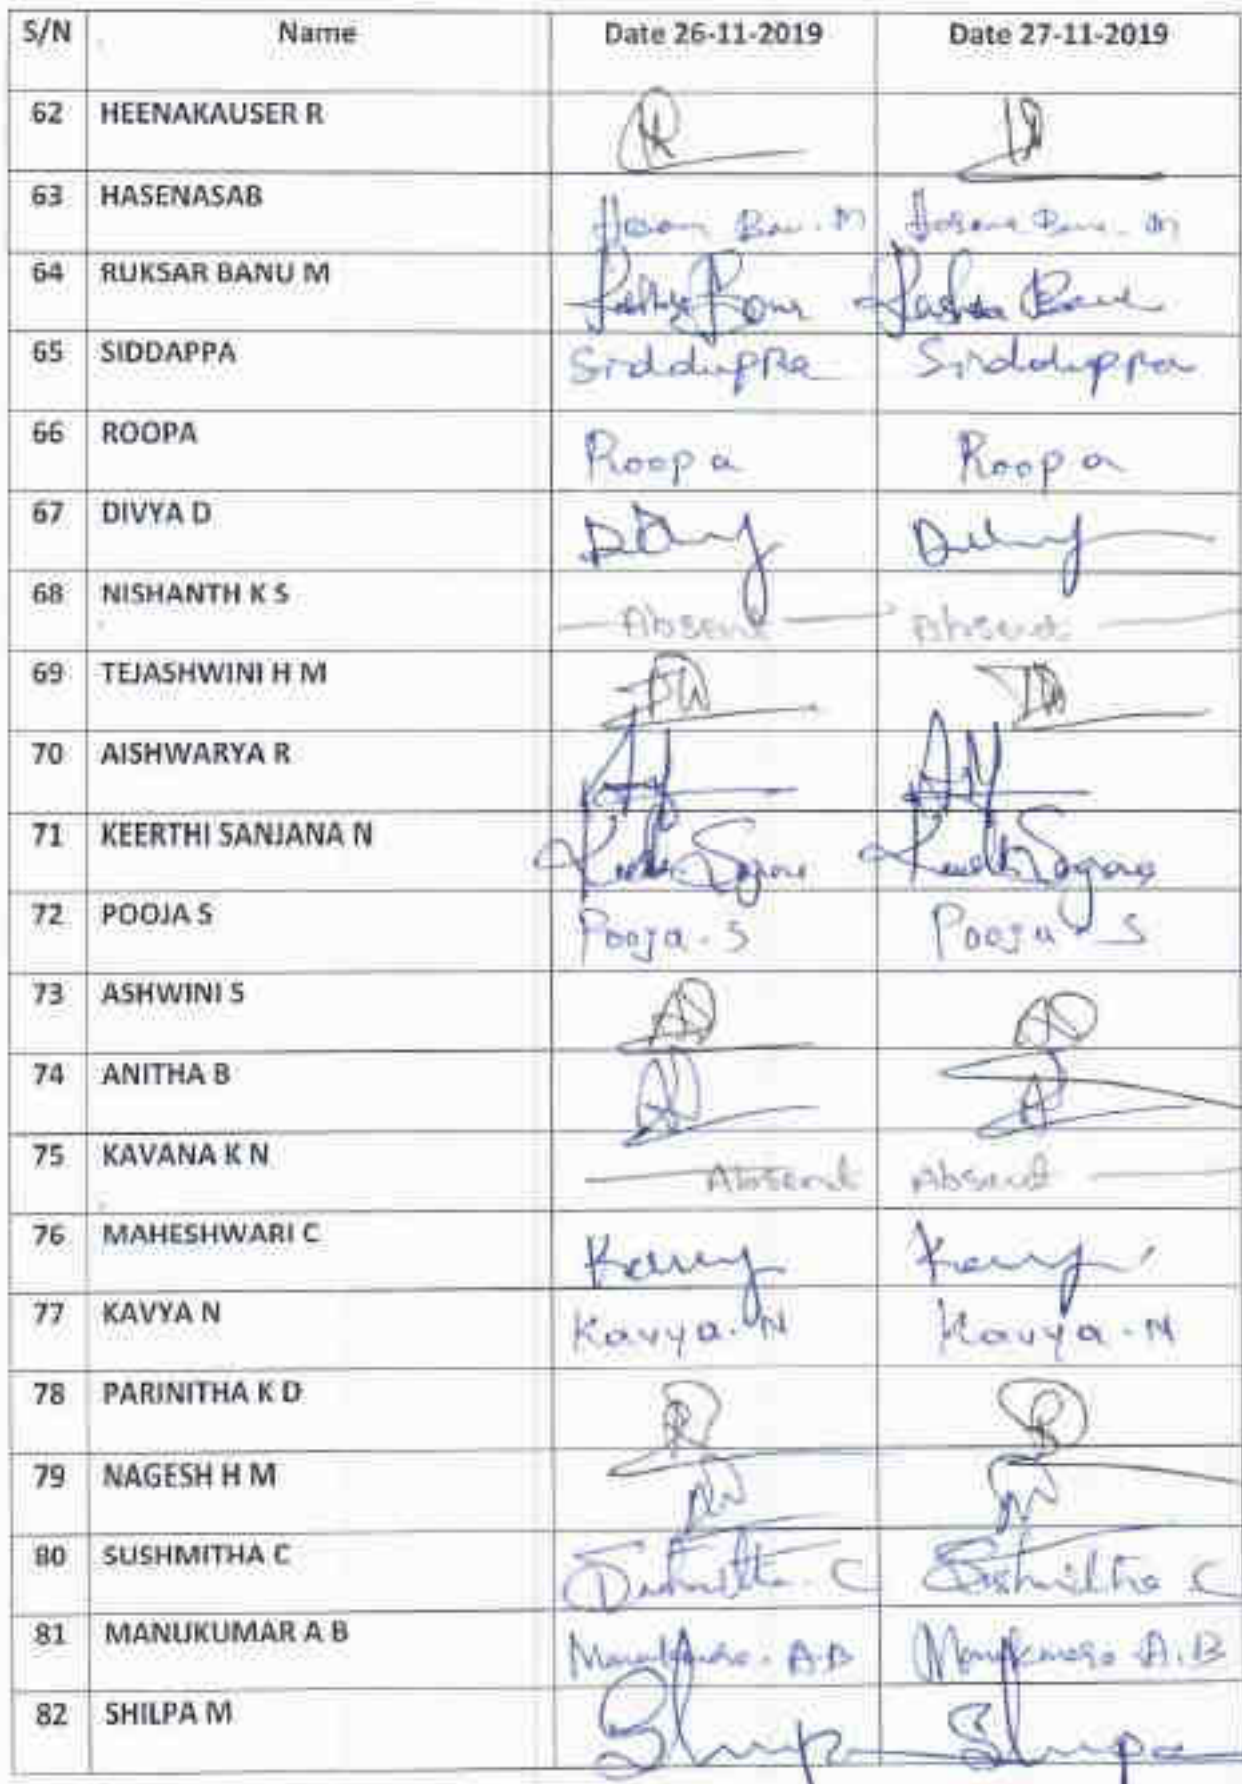 S/N Name Date 26-11-2019 Date 27-11-2019
62 HEENAKAUSER R
63 HASENASAB
64 RUKSAR BANU M
65 SIDDAPPA Siddappa Siddappa
66 ROOPA Roopa Roopa
67 DIVYA D
68 NISHANTH K S Absent Absent
69 TEJASHWINI H M
70 AISHWARYA R
71 KEERTHI SANJANA N
72 POOJA S Pooja. S Pooja S
73 ASHWINI S
74 ANITHA B
75 KAVANA K N Absent Absent
76 MAHESHWARI C
77 KAVYA N Kavya. N Kavya. N
78 PARINITHA K D
79 NAGESH H M
80 SUSHMITHA C Sushmitha C
81 MANUKUMAR A B A.B A.B
82 SHILPA M